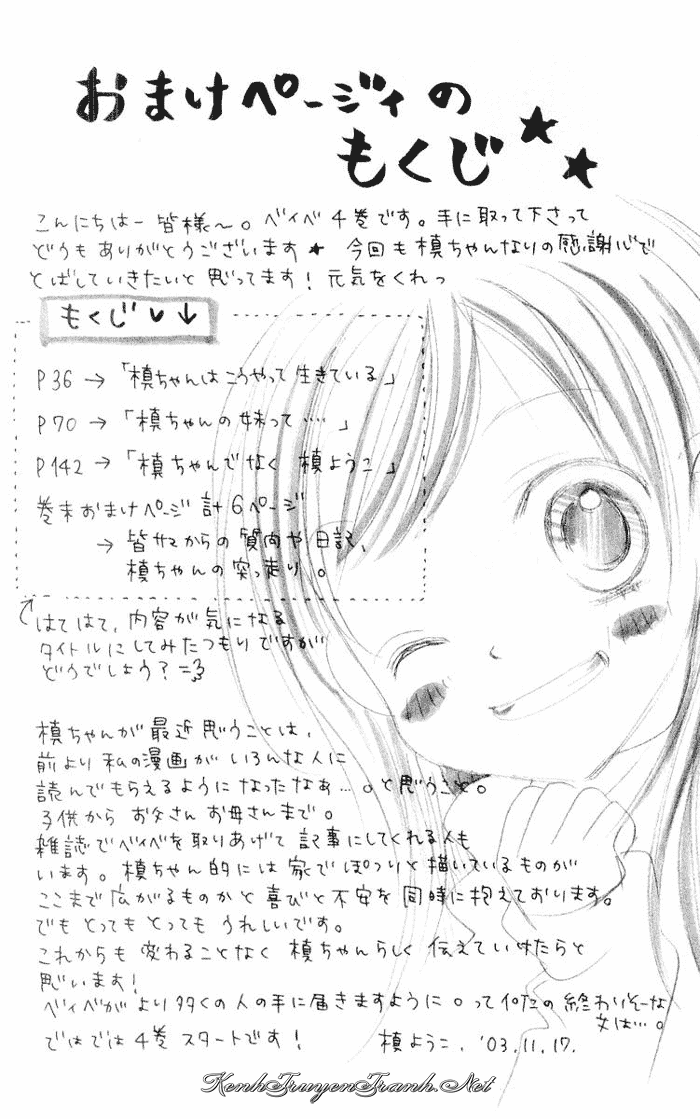 おまけページィの
もくじ
こんにちはー 皆様〜。ベイベ4巻です。手に取って下さって
どうもありがとうございます★ 今回も槙ちゃんなりの感謝心で
とばしていきたいと思ってます！元気をくれっ
もくじ ♥ ↓
P36 → 「槙ちゃんはこうやって生きている」
P70 → 「槙ちゃんの妹って‥‥」
P142 → 「槙ちゃんでなく 槙ようこ」
巻末おまけページ 計6ページ
→ 皆サマからの質問や日記、
槙ちゃんの突っ走り。
はてはて、内容が気になる
タイトルにしてみたつもりですが
どうでしょう？
槙ちゃんが最近思うことは、
前より私の漫画がいろんな人に
読んでもらえるようになったなぁ…。と思うこと。
子供から お父さん お母さんまで。
雑誌でベイベを取りあげて 記事にしてくれる人も
います。槙ちゃん的には 家でぽつりと描いているものが
ここまで広がるものかと喜びと不安を同時に抱えております。
でも とっても とっても うれしいです。
これからも 変わることなく 槙ちゃんらしく 伝えていけたらと
思います！
ベイベがより多くの人の手に届きますように。って の終わりそーな
文は…。
ではでは 4巻 スタートです！ 槙ようこ. '03.11.17.
KenhTruyenTranh.Net